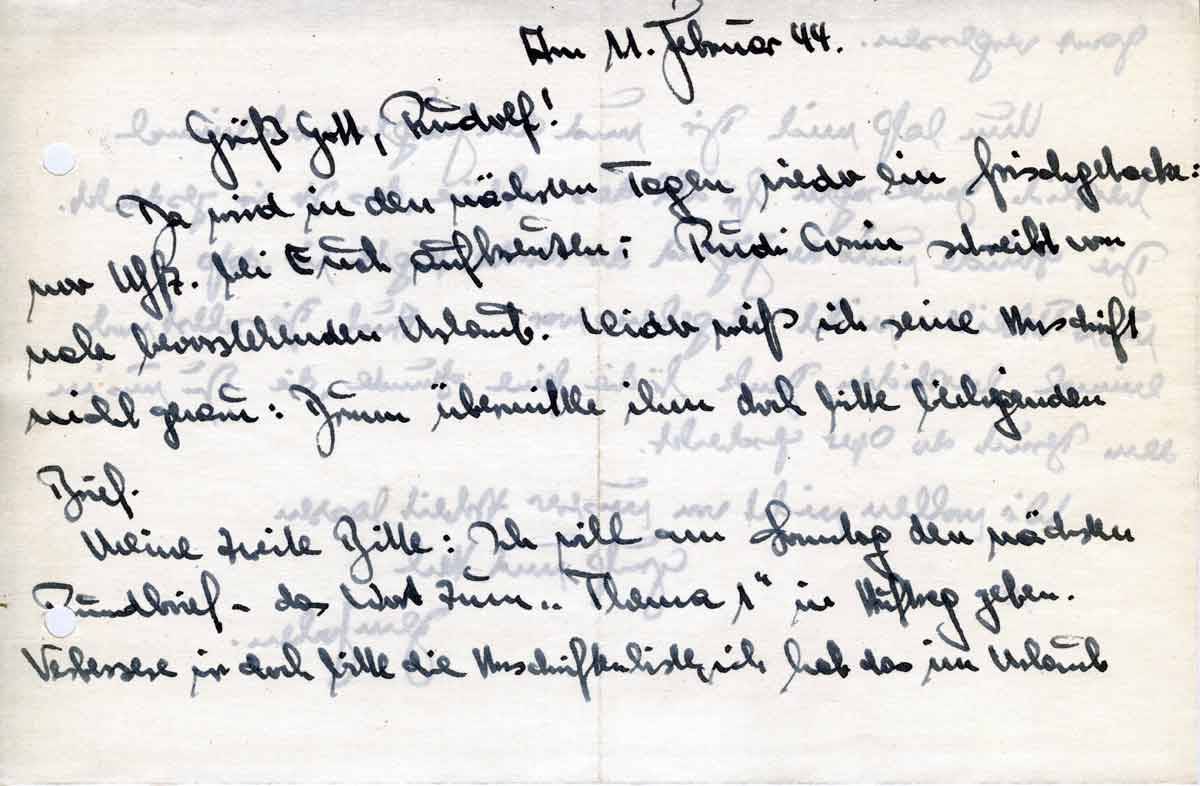 Am 11. Februar 44.
Grüß Gott, Rudolf!
Da wird in den nächsten Tagen wieder ein frischgebacke:
ner Uffz. bei Euch aufkreuzen; Rudi schreibt von
nahe bevorstehenden Urlaub. Leider weiß ich seine Anschrift
nicht genau: Drum übermittle ihm doch bitte beiliegenden
Brief.
Meine zweite Bitte: Ich will am Sonntag den nächsten
Rundbrief - das Wort zum „Thema 1" in Auftrag geben.
Verbessere ir doch bitte die Anschriftenliste, ich hab das im Urlaub